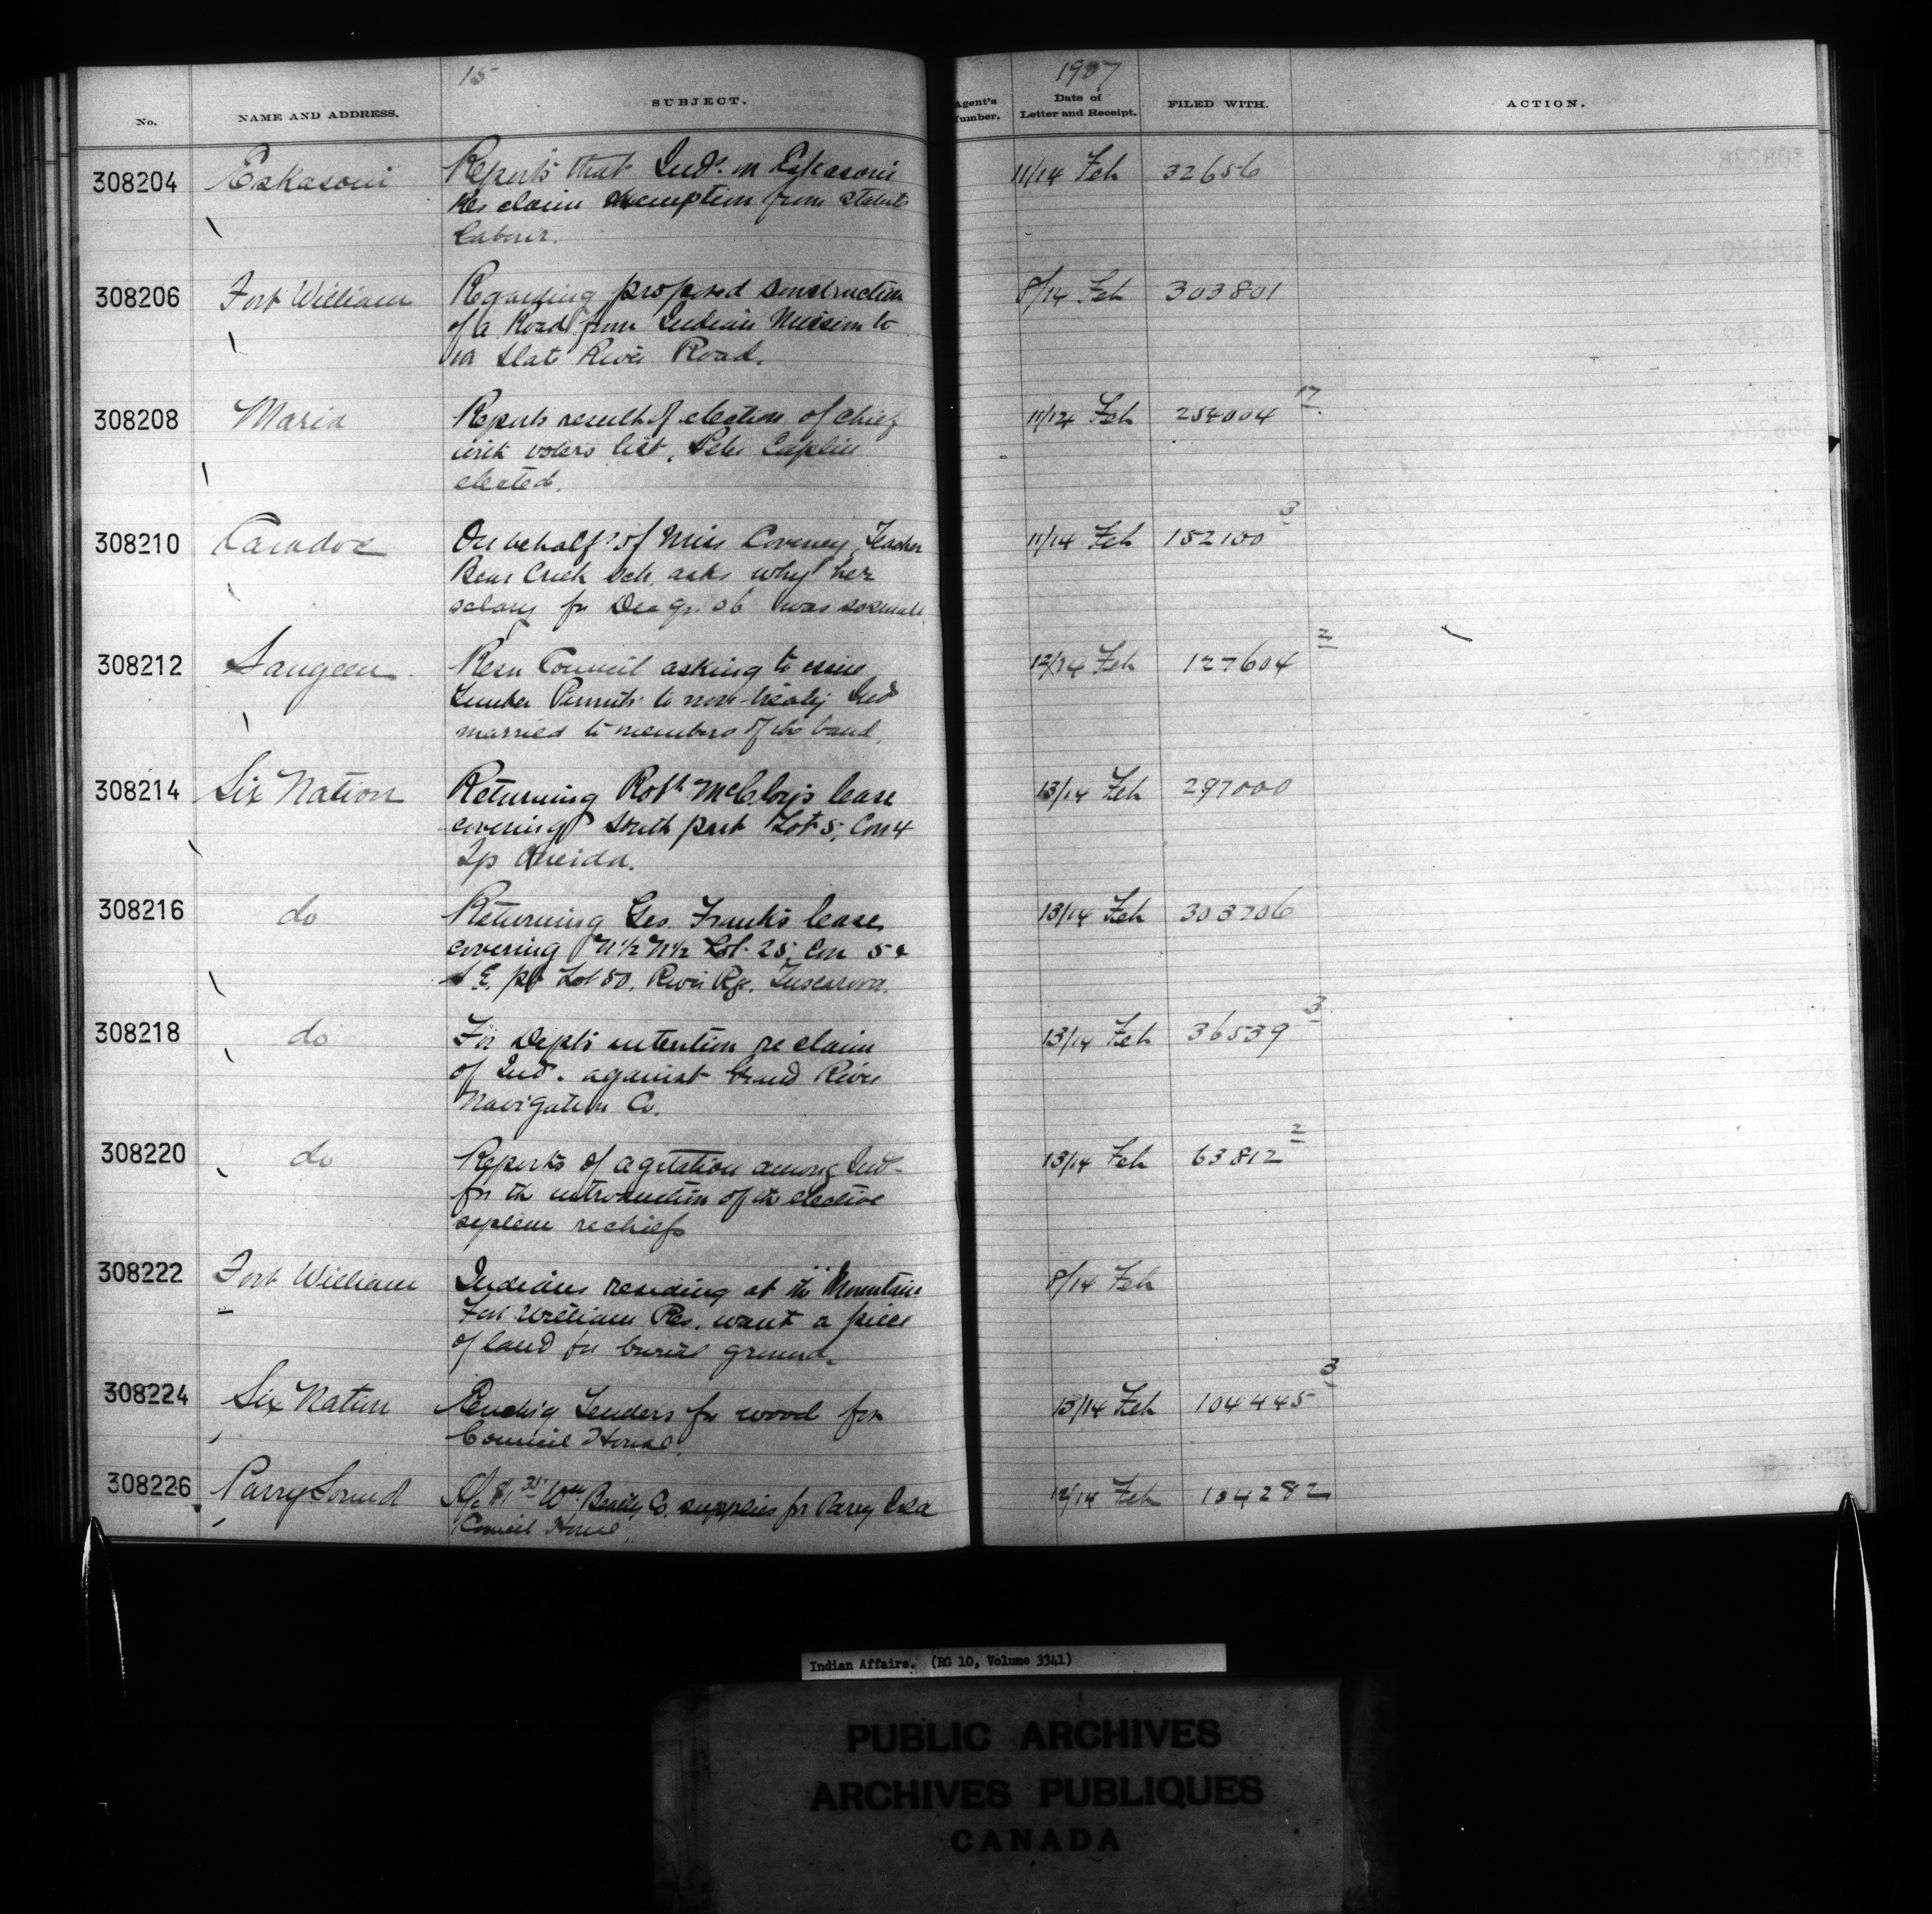 15
1907
No. NAME AND ADDRESS. SUBJECT. Agent's Number. Date of Letter and Receipt. FILED WITH. ACTION.
308204 Eskasoni Reports that Inds. on Eskasoni 11/14 Feh 32656
Res claim exemption from statute
labour.
308206 Fort William Regarding proposed construction 8/14 Feh 303801
of a Road from Indian Mission to
Slate River Road.
308208 Maria Reports result of election of chief 11/14 Feh 254004 17
with voters list. Peter Caplin
elected.
308210 Caradoc On behalf of Miss Coveney, Teacher 11/14 Feh 152100 3
Bear Creek Sch. asks why her
salary for Dec qr. 06 was so small
308212 Saugeen Resn Council asking to issue 12/14 Feh 127604 2
Timber Permits to non-treaty Ind
married to members of the band.
308214 Six Nation Returning Robt. McCloys lease 13/14 Feh 297000
covering South part Lot 5, Con 4
Tp Oneida.
308216 do Returning Geo. Franks lease 13/14 Feh 303706
covering N1/2 N1/2 Lot 25, Con 5 &
S.E. pt Lot 50, River Rge. Tuscarora.
308218 do For Depts intention re claim 13/14 Feh 36539 3
of Ind. against Grand River
Navigation Co.
308220 do Reports of agitation among Ind 13/14 Feh 63812 2
for the introduction of the elective
system re chiefs
308222 Fort William Indians residing at the Mountain 8/14 Feh
Fort William Res. want a piece
of land for burial ground.
308224 Six Nation Tenders for wood for 13/14 Feh 104445 3
Council House.
308226 Parry Sound A/c 81 35 Wm. Beatty Co. supplies for Parry Isld 12/14 Feh 104282
Council House
Indian Affairs. (RG 10, Volume 3341)
PUBLIC ARCHIVES
ARCHIVES PUBLIQUES
CANADA